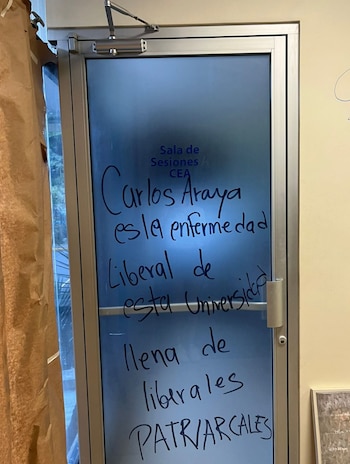 Sala de
Sesiones
CEA
Carlos Araya
es la enfermedad
Liberal de
esta Universidad
llena de
liberales
PATRIARCALES